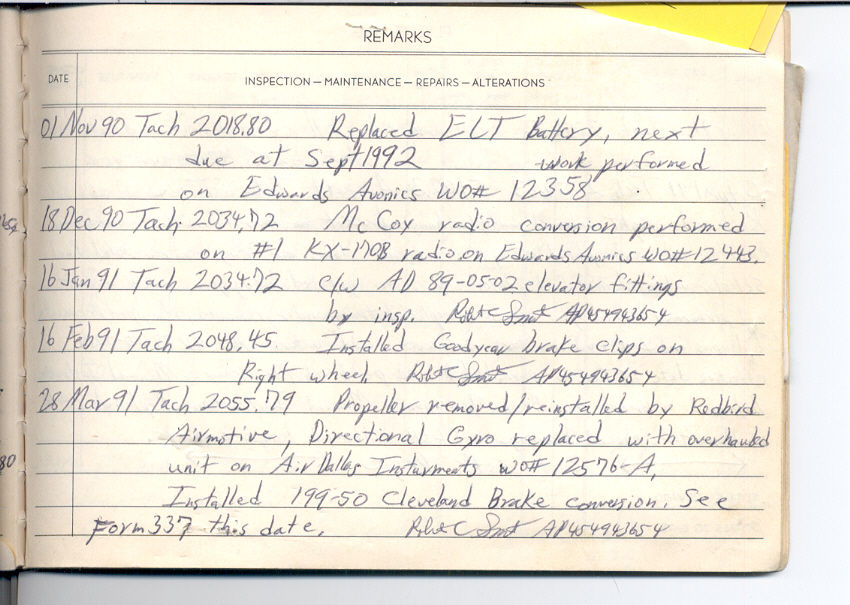 REMARKS
DATE
INSPECTION — MAINTENANCE — REPAIRS — ALTERATIONS
01 Nov 90 Tach 2018.80 Replaced ELT Battery, next
due at Sept 1992 work performed
on Edwards Avonics WO# 12358
18 Dec 90 Tach 2034.72 McCoy radio conversion performed
on #1 KX-170B radio on Edwards Avonics WO# 12443.
16 Jan 91 Tach 2034.72 c/w AD 89-05-02 elevator fittings
by insp. AP454943654
16 Feb 91 Tach 2048.45 Installed Goodyear brake clips on
Right wheel. AP454943654
28 Mar 91 Tach 2055.79 Propeller removed/reinstalled by Redbird
Airmotive, Directional Gyro replaced with overhauled
unit on Air Dallas Insturments WO# 12576-A,
Installed 199-50 Cleveland Brake conversion. See
Form 337 this date. AP454943654